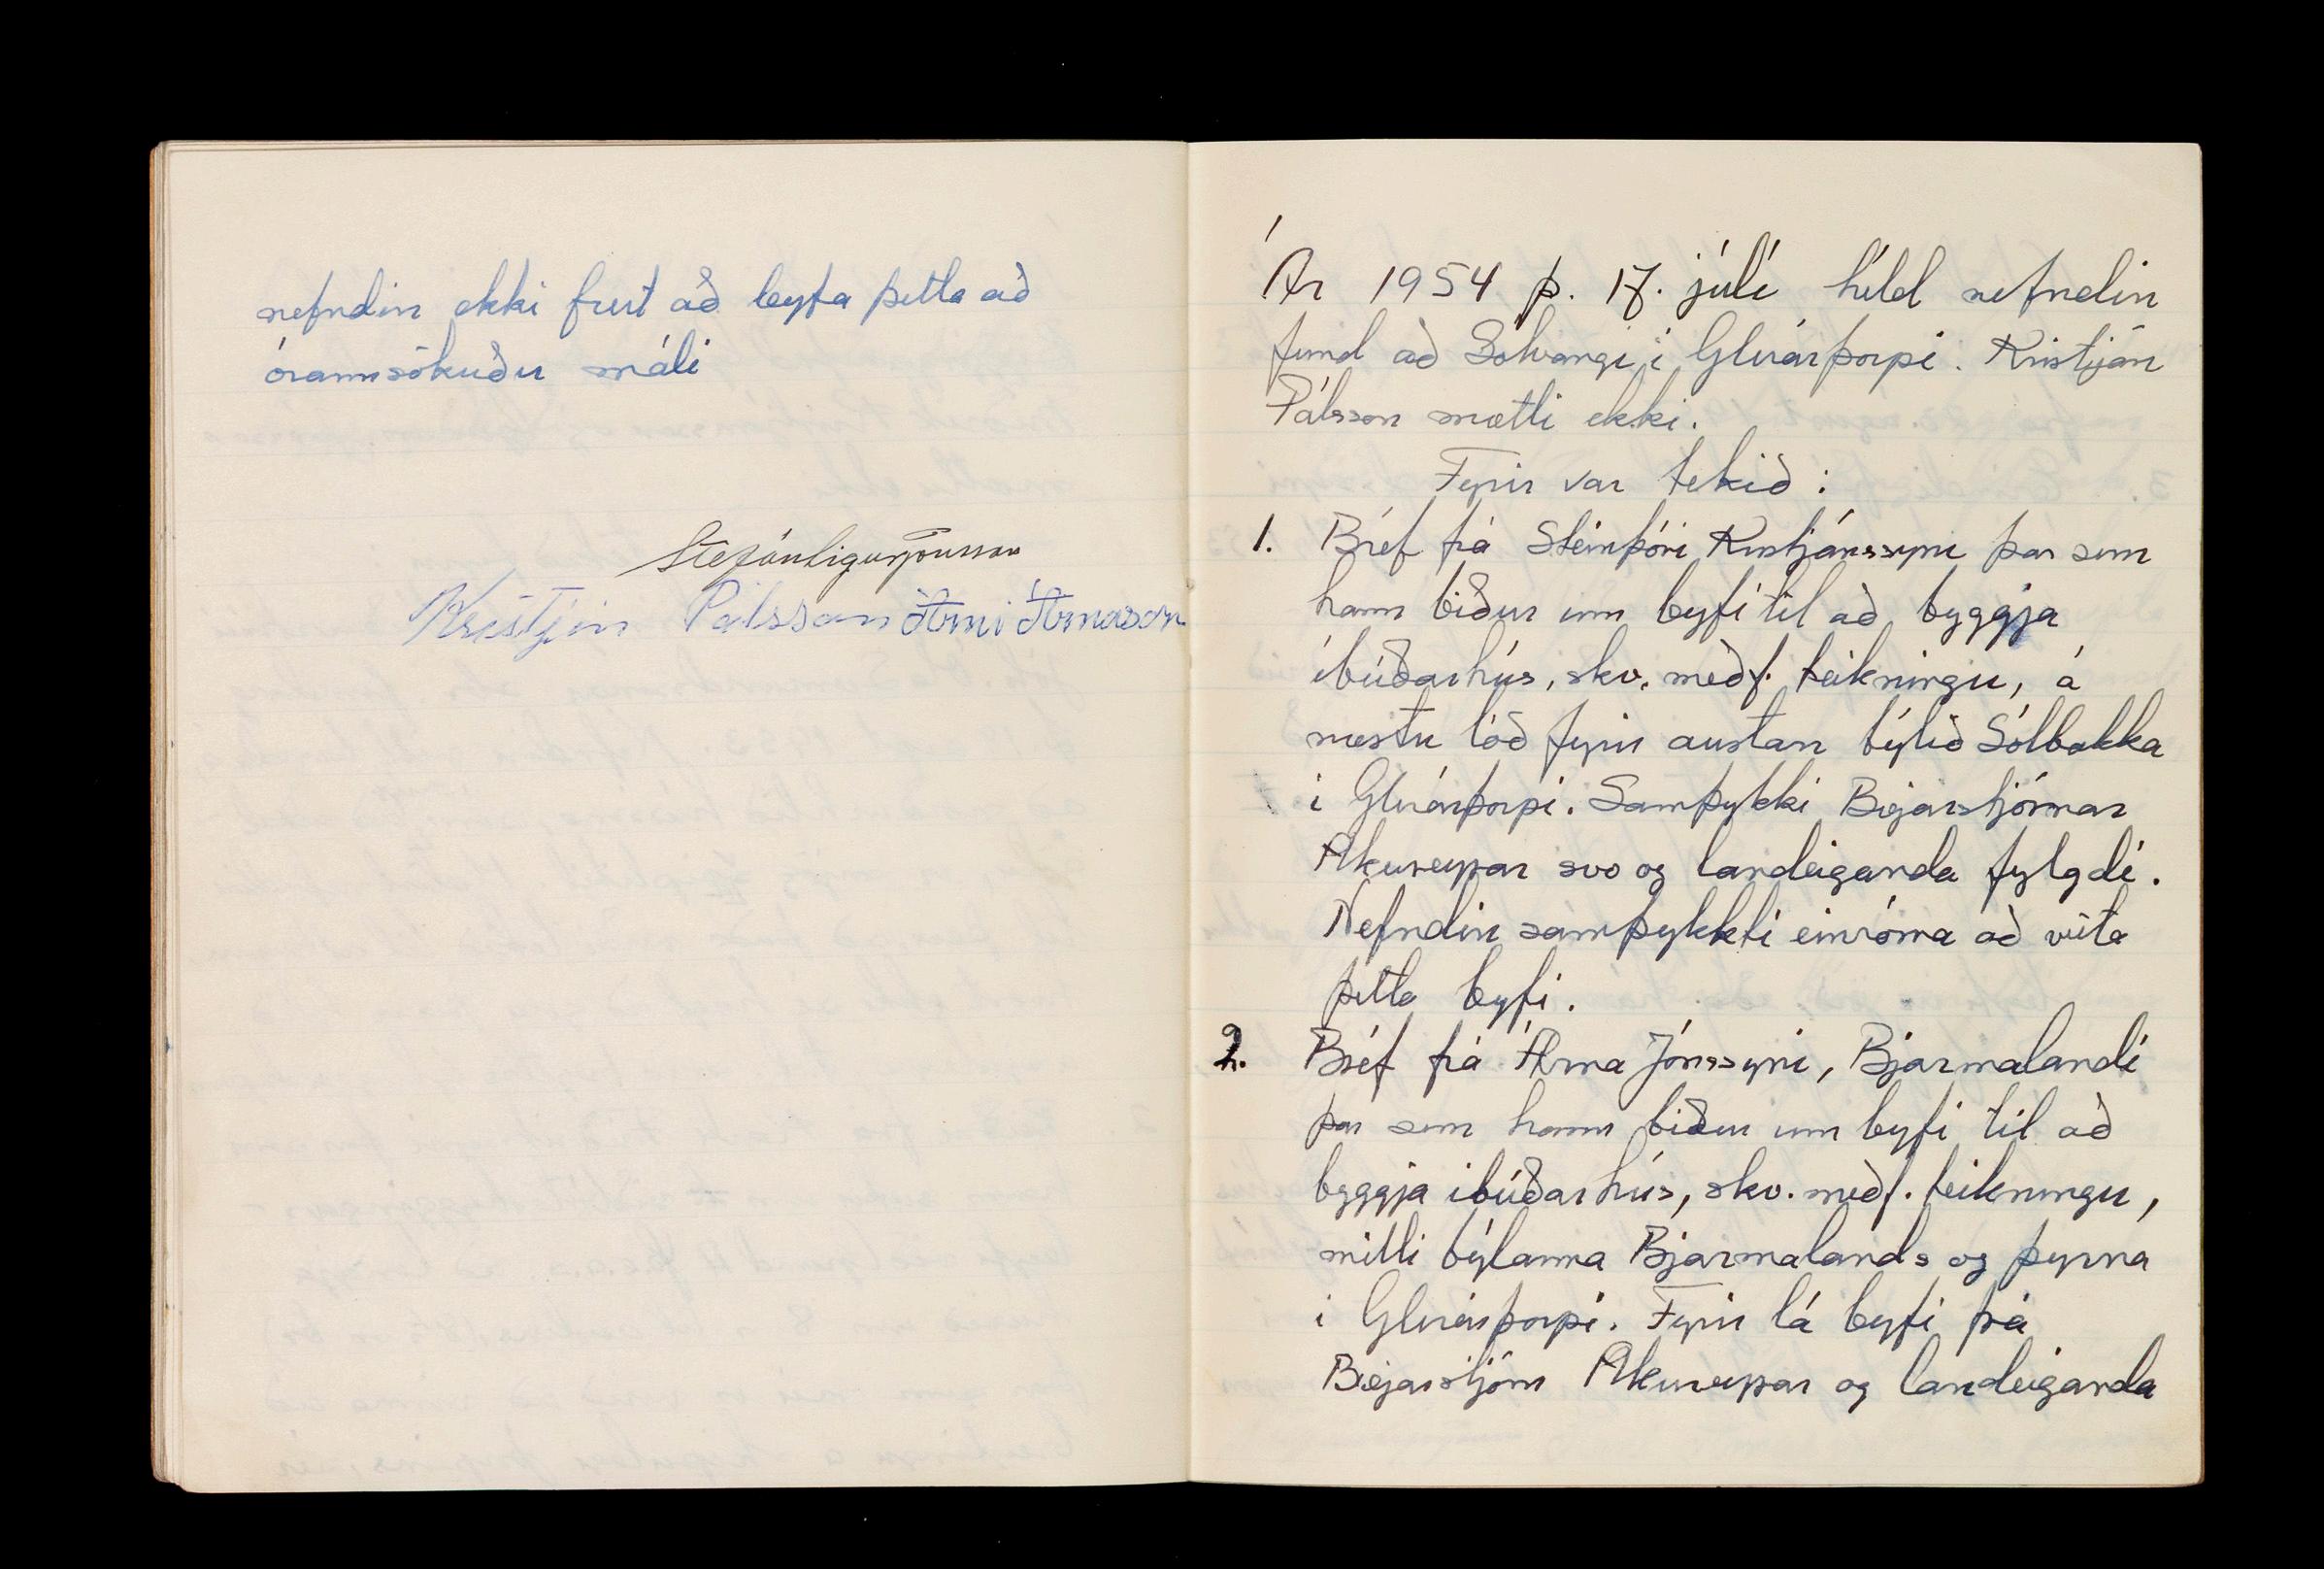 nefndin ekki fært að leyfa þetta að
órannsökuðu máli
Stefán Sigurjónsson
Kristján Pálsson Árni Árnason
Ár 1954 þ. 17. júlí héld nefndin
fund að Sólvangi í Glerárþorpi. Kristján
Pálsson mætti ekki.
Fyrir var tekið:
1. Bréf frá Steinþóri Kristjánssyni þar sem
hann biður um leyfi til að byggja
íbúðarhús, skv. meðf. teikningu, á
næstu lóð fyrir austan býlið Sólbakka
í Glerárþorpi. Samþykki Bæjarstjórnar
Akureyrar svo og landeiganda fylgdi.
Nefndin samþykkti einróma að veita
þetta leyfi.
2. Bréf frá Árna Jónssyni, Bjarmalandi
þar sem hann biður um leyfi til að
byggja íbúðarhús, skv. meðf. teikningu,
milli býlanna Bjarmalands og Þyrna
í Glerárþorpi. Fyrir lá leyfi frá
Bæjarstjórn Akureyrar og landeiganda